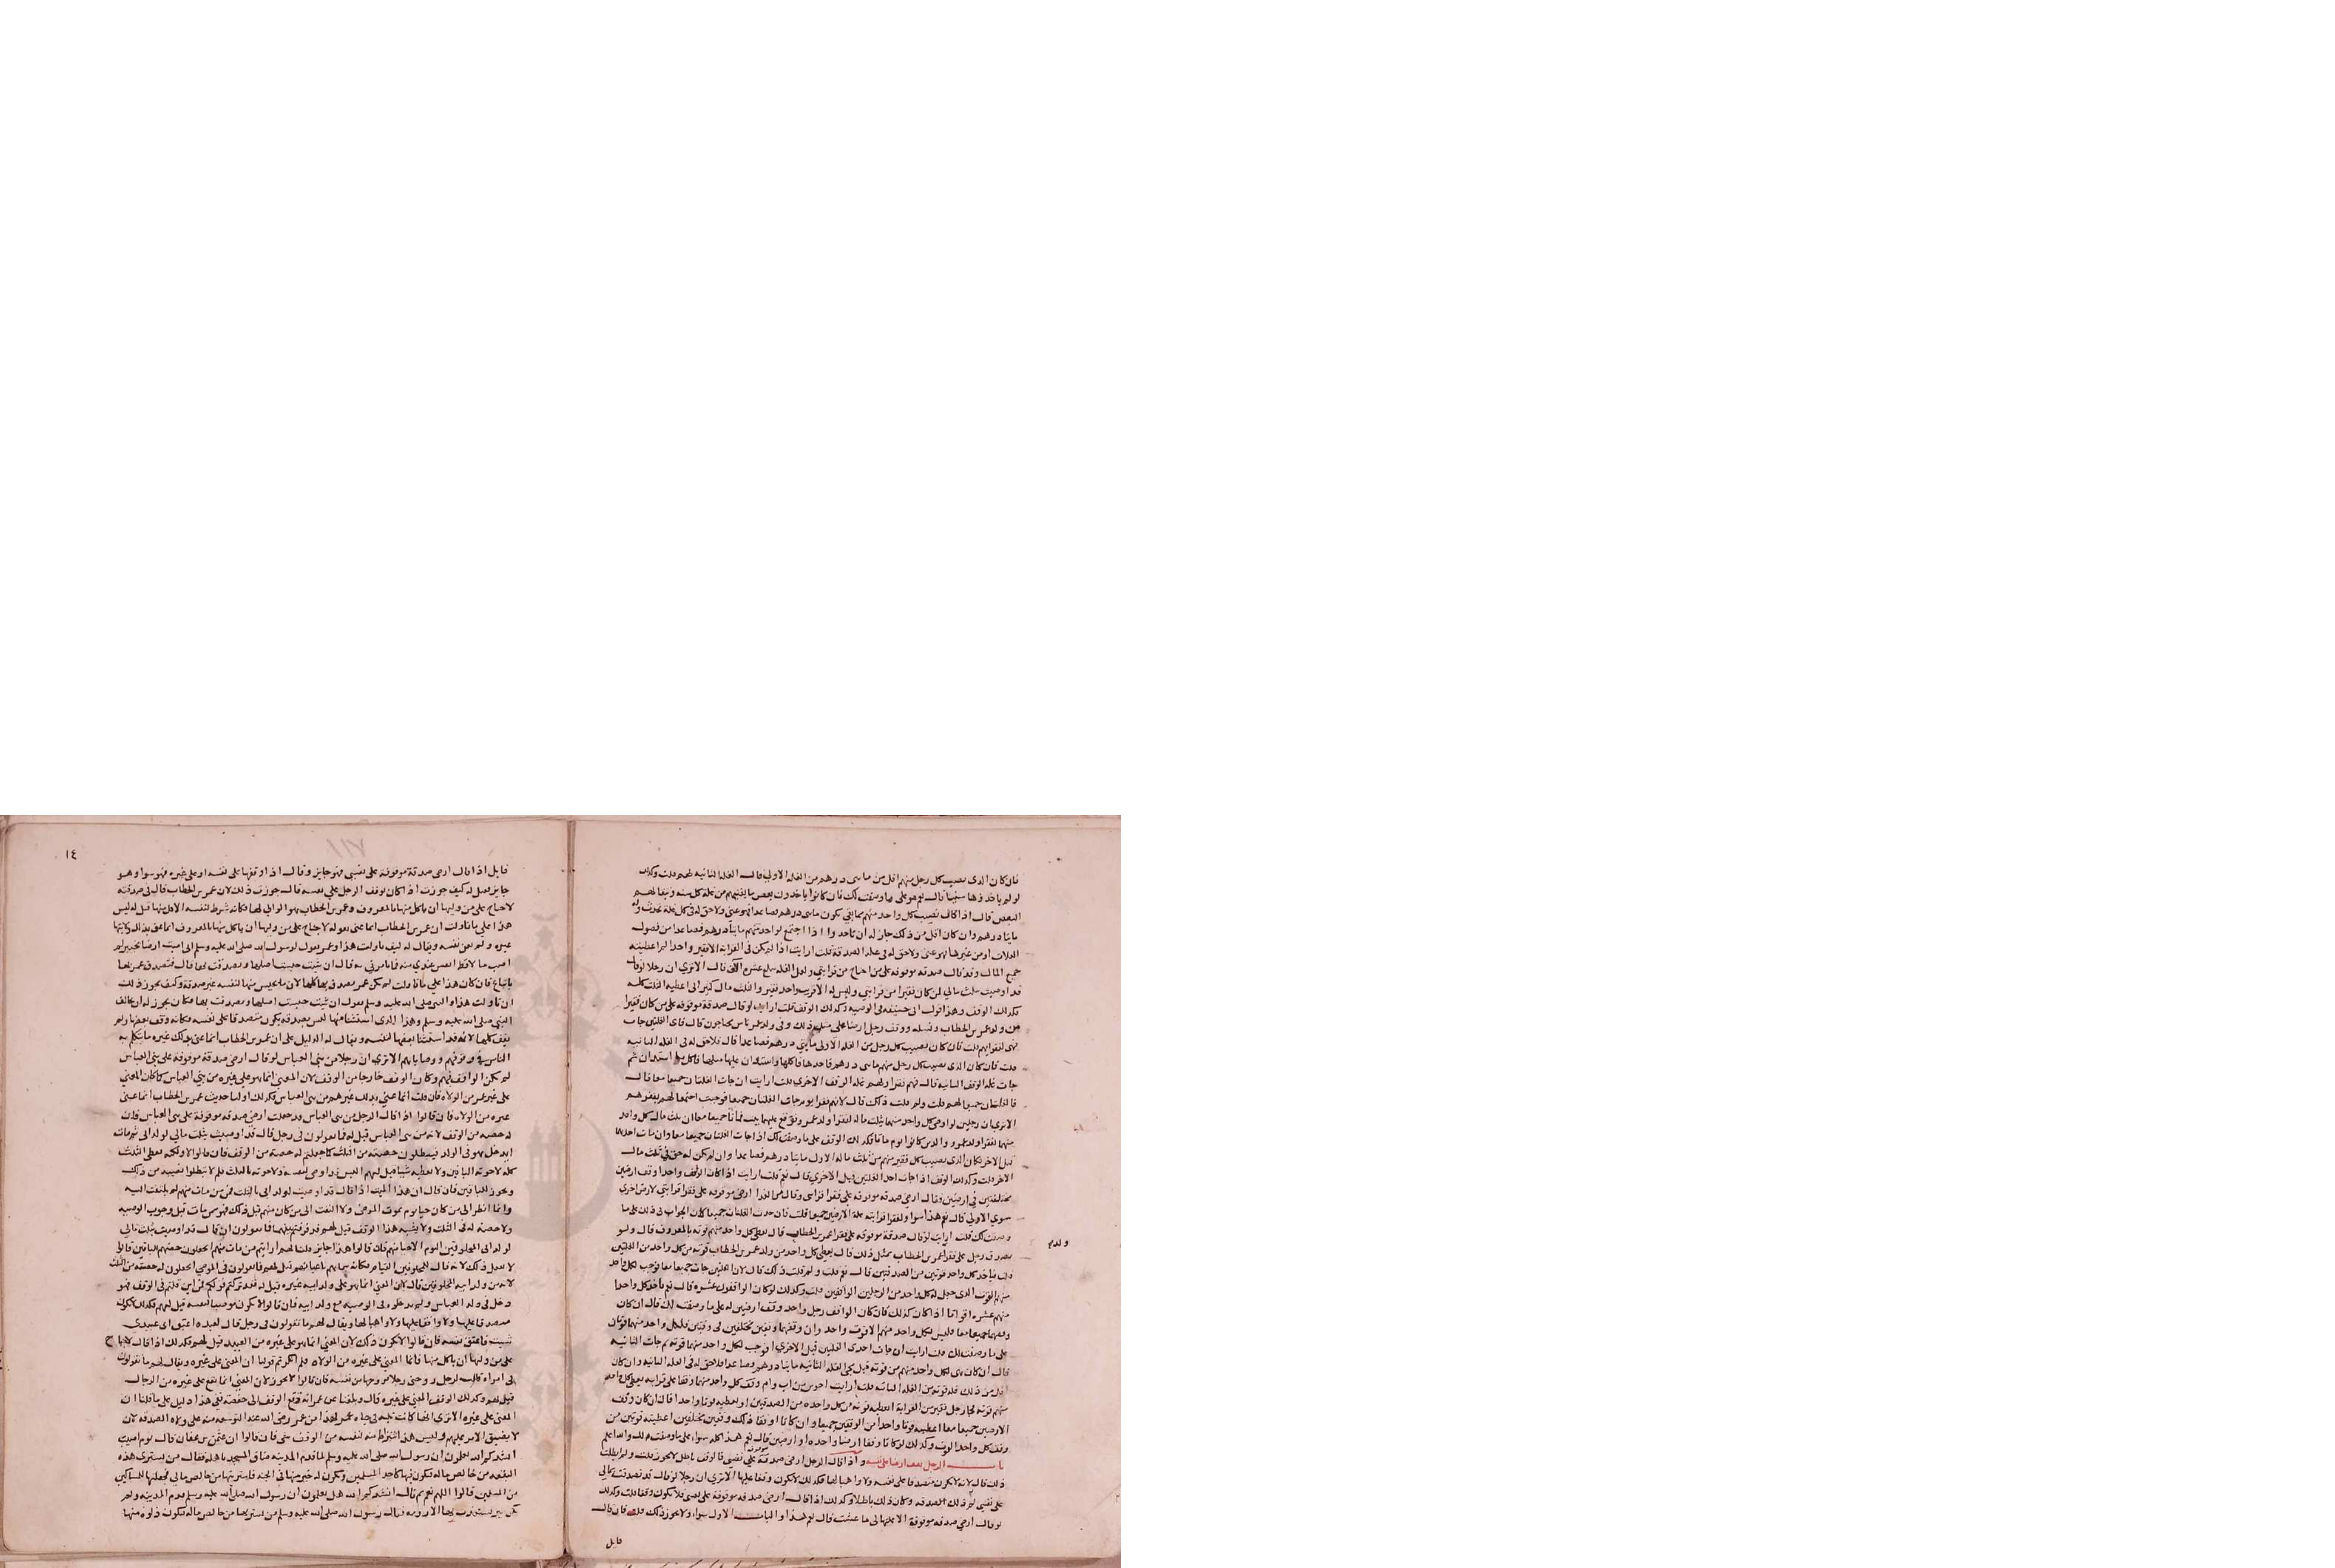 فان كان الذي نصيب كل رجل منهم اقل من مايتي درهم من الغله الاولي قال الغله الثانيه لهم قلت وكذلك
لو لم ياخذوها سنينا قال نعم هو على ما وصفت لك فان كانوا ياخذون بعض ما يقيتهم من غلة كل سنه وتبقا لهم
البعض قال اذا كان نصيب كل واحد منهم مما بقي يكون مايتي درهم فصاعدا فهو غني ولا حق له في كل غلة تحدث
مايتا درهم وان كان اقل من ذلك جاز له ان ياخذ اذا اجتمع لواحد منهم مايتا درهم فصاعدا من فضول
الغلات او من غيرها فهو غني ولا حق له في غلة الصدقة قلت ارايت اذا لم يكن في القرابة الا فقير واحد
جميع المال وقد قال صدقه موقوفه على من احتاج من قرابتي قال الا تري ان رجلا لو قال
قد اوصيت بثلث مالي لمن كان فقيرا من قرابتي وليس له الا قريب واحد فقير والثلث مال كثير اني اعطيه الثلث كله
وكذلك الوقف وهذا قول ابي حنيفه في الوصيه وكذلك الوقف قلت ارايت لو قال صدقة موقوفه على من كان فقيرا
من ولد عمر بن الخطاب ونسله ووقف رجل ارضا على مثل ذلك وفي ولد عمر ناس محتاجون قال فاي الغلتين جات
فهي لفقرايهم قلت فان كان نصيب كل رجل من الغله الاولى مايتي درهم فصاعدا قال فلا حق له في الغله الثانيه
قلت فان كان الذي نصيب كل رجل منهم مايتي درهم فاخذها فاكلها واستدان عليها
جات غله الوقف الثانيه قال فهم فقرا ولهم غله الوقف الاخري قلت ارايت ان جات الغلتان جميعا معا قال
فالغلتان جميعا لهم قلت ولم قلت ذلك قال لانهم فقرا يوم جات الغلتان جميعا
الا تري ان رجلين لو اوصى كل واحد منهما بثلث ماله لفقرا ولد عمر
قبل الاخر فكان الذي نصيب كل فقير منهم من ثلث مال الاول مايتا درهم فصاعدا وان لم يكن له حق في ثلث مال
الاخر قلت وكذلك الوقف اذا جات احدا الغلتين قبل الاخري قال نعم قلت ارايت اذا كان الوقف واحدا وقف ارضين
مختلفتين في ارضين وقال ارضي صدقه موقوفه على فقرا قرابتي
سوي الاولي قال نعم هذا سوا ولفقرا قرابته غلة الارضين جميعا
وصفت لك قلت ارايت لو قال صدقة موقوفه على فقرا عمر بن الخطاب قال يعطي كل واحد منهم قوته بالمعروف قال ولو
تصدق رجل على فقرا عمر بن الخطاب بمثل ذلك قال يعطي كل واحد من ولد عمر بن الخطاب قوته من كل واحد من الغلتين
ولد
قلت فياخذ كل واحد قوتين من الصدقتين قال نعم قلت ولم قلت ذلك قال لان الغلتين جات جميعا معا فوجب لكل واحد
منهم القوت الذي جعل له كل واحد من الرجلين الواقفين قلت وكذلك لو كان الواقفون عشره قال نعم ياخذ كل واحد
منهم عشره اقواتا اذا كان كذلك فان كان الواقف رجل واحد وقف ارضين له على ما وصفت لك قال ان كان
وقفهما جميعا معا فليس لكل واحد منهم الا قوت واحد وان وقفهما وقفين مختلفين
على ما وصفت لك قلت ارايت ان جات احدى الغلتين قبل الاخري
اقل من ذلك فله قوته من الغله الثانيه قلت ارايت اخوين من اب وام وقف كل واحد منهما وقفا على قرابته
منهم قوته فجا رجل فقير من القرابة اتعطيه قوته من كل واحده من الصدقتين او تعطيه قوتا واحدا قال ان كان وقف
الارضين جميعا معا اعطيته قوتا واحدا من الوقفين جميعا وان كانا اوقفا ذلك وقفين مختلفين اعطيته قوتين من
وقف كل واحد القوت وكذلك لو كانا وقفا ارضا واحده او ارضين قال نعم هذا كله سواء على ما وصفت لك والله اعلم
باب الرجل يقف ارضا على نفسه واذا قال الرجل ارضي صدقة موقوفة على نفسي فالوقف باطل لا يجوز قلت ولم ابطلت
ذلك قال لانه لا يكون متصدقا على نفسه ولا واهبا لها فكذلك لا يكون وقفا عليها الا تري ان رجلا لو قال قد تصدقت بمالي
على نفسي لم تجز ذلك الصدقه وكان ذلك باطلا وكذلك اذا قال ارضي صدقه موقوفه على نفسي فلا يكون وقفا قلت وكذلك
لو قال ارضي صدقه موقوفة الا غلتها لي ما عشت قال نعم هذا والباب الاول سواء ولا يجوز ذلك قلت فان قال
قايل
١٤
١١٧
قايل اذا قال ارضي صدقة موقوفه على نفسي فهو جايز وقال اذا وقفها على نفسه او على غيره فهو سوا وهو
جايز قيل له كيف جوزت اذا كان يوقف الرجل على نفسه قال جوزت ذلك لان عمر بن الخطاب قال في صدقته
لا جناح على من وليها ان ياكل منها بالمعروف وعمر بن الخطاب يومئذ الوالي لها فكانه شرط لنفسه الاكل منها قيل له ليس
هذا على ما تاولت ان عمر بن الخطاب انما عنى بقوله لا جناح على من وليها ان ياكل منها بالمعروف
غيره ولم يعن نفسه ويقال له كيف تاولت هذا وعمر يقول لرسول الله صلى الله عليه وسلم اني اصبت ارضا بخيبر لم
اصب مالا قط انفس عندي منه فما تامرني به قال ان شيت حبست اصلها وتصدقت بها قال فتصدق عمر بها
لا تباع فان كان هذا على ما تاولت لم يكن عمر تصدق بها كلها لان ما يحبس منها لنفسه غير صدقة وكيف يجوز ذلك
ان تاولت هذا والنبي صلى الله عليه وسلم يقول ان شيت حبست اصلها وتصدقت بها فكان يجوز له ان يخالف
النبي صلى الله عليه وسلم وهذا الذي استثنا منها ليس بصدقه يكون متصدقا على نفسه وكانه وقف بعضها ولم
يقف كلها لانه قد استثنا بعضها لنفسه ويقال له الدليل على ان عمر بن الخطاب انما عنى بذلك غيره ما يتكلم به
الناس في وقوفهم ووصاياهم الا تري ان رجلا من بني العباس لو قال ارضي صدقة موقوفة على بني العباس
لم يكن الواقف فيهم وكان الوقف خارجا من الوقف لان المعنى انما هو على غيره من بني العباس كما كان المعني
على غير عمر من الولاه فان قلت انما عنى بذلك غيرهم من بني العباس فكذلك اولنا حديث عمر بن الخطاب انما عنى
غيره من الولاه فان قالوا اذا قال الرجل من بني العباس قد جعلت ارضي صدقه موقوفة على بني العباس فان
له حصه من الوقف لانه من بني العباس قيل له فما تقولون في رجل قال قد اوصيت بثلث مالي لولد ابي ثم مات
ايدخل هو في الولد فيبطلون حصته من الثلث كما جعلتم له حصة من الوقف فان قالوا لا ولكنه يعطى الثلث
كله لاخوته الباقين ولا يعطيه شيا قيل لهم اليس قد اوصى لنفسه ولاخوته بالثلث فلم لا تبطلوا نصيبه من ذلك
ويجوز للباقين فان قال ان هذا الميت اذا قال قد اوصيت لولد ابي بالثلث فمن مات منهم لم يلتفت اليه
وانما انظر الى من كان حيا يوم يموت الموصي ولا التفت الى من كان منهم قبل ذلك فهو من مات قبل وجوب الوصيه
ولا حصه له في الثلث ولا يشبه هذا الوقف قيل لهم قد فرقتم بينهما فما تقولون ان قال قد اوصيت بثلث مالي
لولد ابي المخلوقين اليوم الاحيا منهم فان قالوا هذا جايز قلنا لهم ارايتم من مات منهم اتجعلون حصتهم للباقين قالوا
لا نفعل ذلك لانه قال المخلوقين القيام فكانه سماهم باعيانهم قيل لهم فما تقولون في الموصي اتجعلون له حصته من الثلث
لانه من ولد ابيه المخلوقين قال لان المعنى انما هو على ولد ابيه غيره قيل له فقد تركتم قولكم
دخل في ولد العباس ولم يدخلوه في الوصيه مع ولد ابيه فان قالوا لا يكون موصيا لنفسه قيل لهم فكذلك لا يكون
متصدقا عليها ولا واقفا عليها ولا واهبا لها ويقال لهم ما تقولون في رجل قال لعبده اعتق اي عبيدي
شيت فاعتق نفسه فان قالوا لا يكون ذلك لان المعني انما هو على غيره من العبيد قيل لهم فكذلك اذا قال لا جناح
على من وليها ان ياكل منها فانما المعني على غيره من الولاه فلم انكرتم قولنا ان المعنى على غيره ويقال لهم ما تقولون
في امراه قالت لرجل زوجني رجلا فزوجها من نفسه فان قالوا لا يجوز لان المعنى انما يقع على غيره من الرجال
قيل لهم وكذلك الوقف المعني على غيره قال وبلغنا عن عمر انه دفع الوقف الى حفصه ففي هذا دليل على ما قلنا ان
المعني على غيره الا تري انها كانت تليه في حياة عمر فهذا من عمر رضي الله عنه التوسعه منه على ولاه الصدقه لان
لا يضيق الامر عليهم وليس هذا اشتراط منه لنفسه من الوقف شي فان قالوا ان عثمن بن عفان قال يوم اصيب
انشدكم الله اتعلمون ان رسول الله صلى الله عليه وسلم لما قدم المدينه ضاق المسجد باهله فقال من يشتري هذه
البقعه من خالص ماله فيكون فيها كاحد المسلمين ويكون له خير منها في الجنه فاشتريتها من خالص مالي فجعلتها للمساكين
من المسلمين قالوا اللهم نعم ثم قال انشدكم الله هل تعلمون ان رسول الله صلى الله عليه وسلم قدم المدينه ولم
يكن بير يستعذب بها الا رومه فقال رسول الله صلى الله عليه وسلم من يشتريها من خالص ماله فيكون دلوه منها